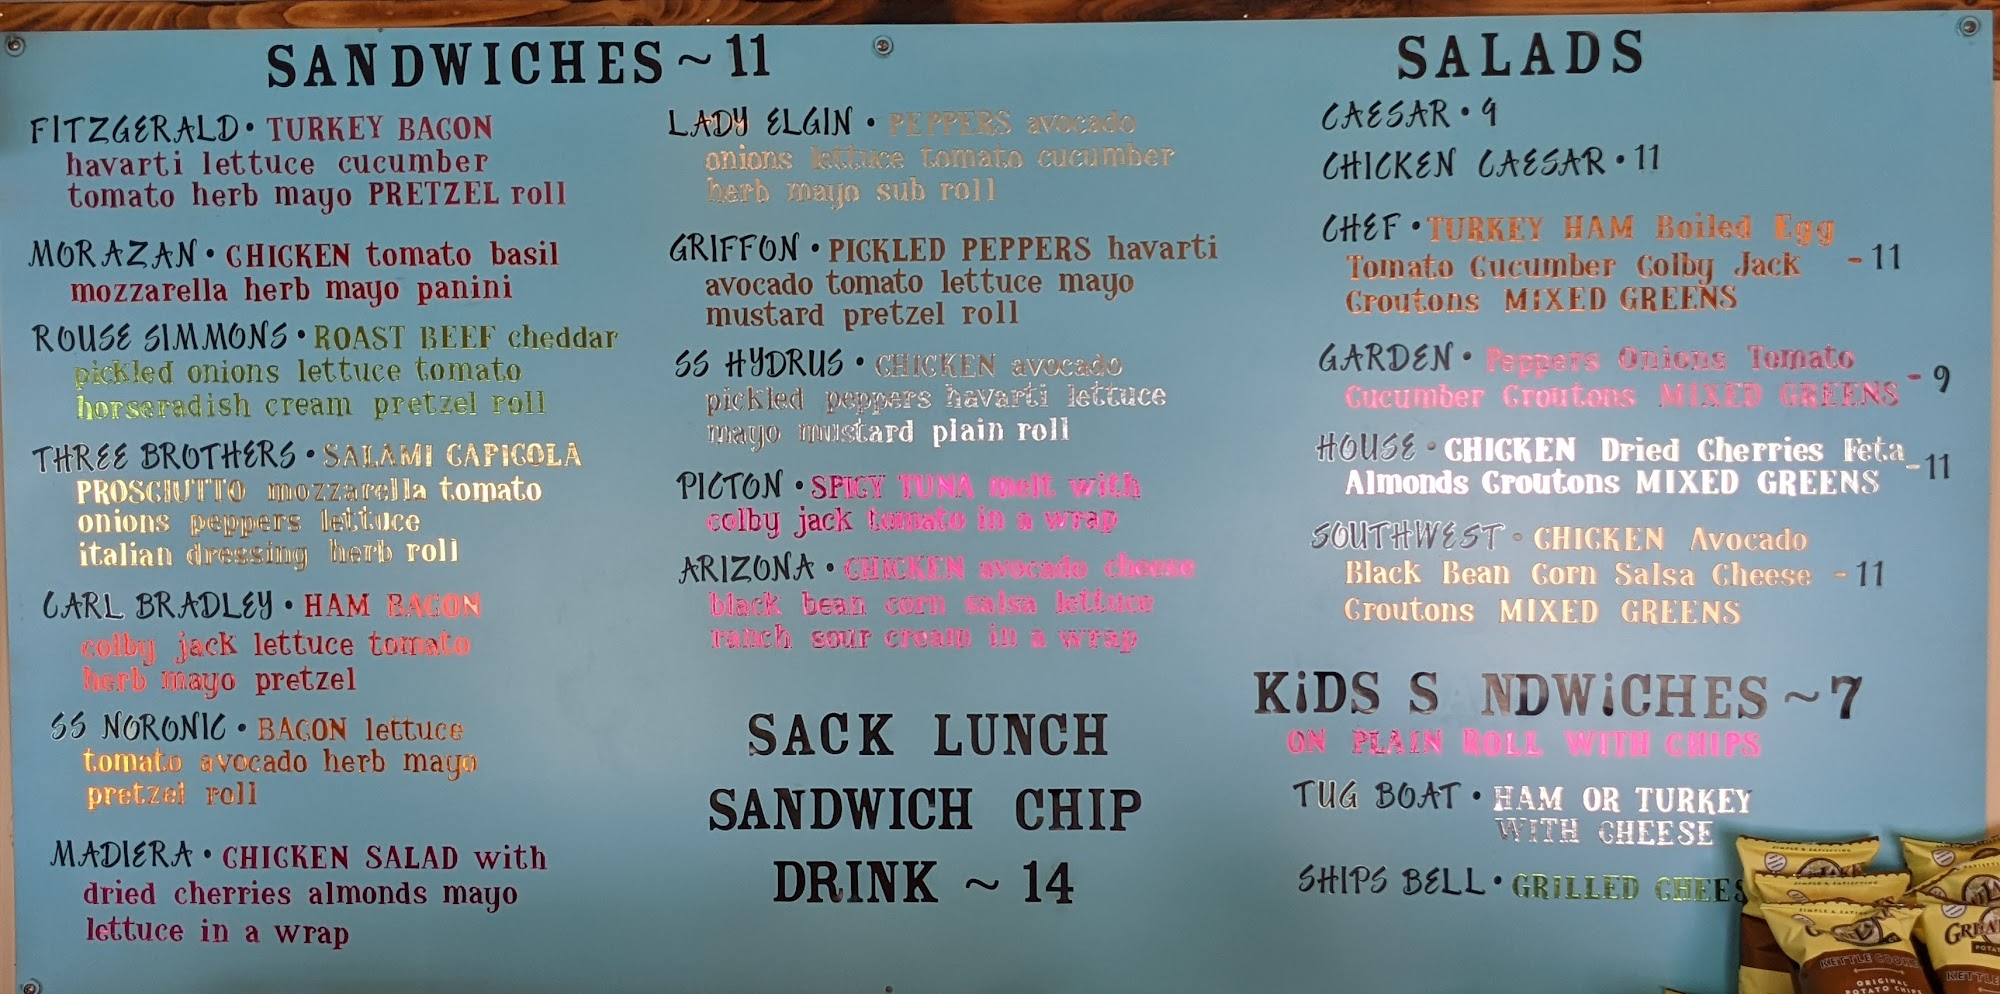 SANDWICHES ~ 11
FITZGERALD • TURKEY BACON
havarti lettuce cucumber
tomato herb mayo PRETZEL roll
MORAZAN • CHICKEN tomato basil
mozzarella herb mayo panini
ROUSE SIMMONS • ROAST BEEF cheddar
pickled onions lettuce tomato
horseradish cream pretzel roll
THREE BROTHERS • SALAMI CAPICOLA
PROSCIUTTO mozzarella tomato
onions peppers lettuce
italian dressing herb roll
CARL BRADLEY • HAM BACON
colby jack lettuce tomato
herb mayo pretzel
SS NORONIC • BACON lettuce
tomato avocado herb mayo
pretzel roll
MADIERA • CHICKEN SALAD with
dried cherries almonds mayo
lettuce in a wrap
LADY ELGIN • PEPPERS avocado
onions lettuce tomato cucumber
herb mayo sub roll
GRIFFON • PICKLED PEPPERS havarti
avocado tomato lettuce mayo
mustard pretzel roll
SS HYDRUS • CHICKEN avocado
pickled peppers havarti lettuce
mayo mustard plain roll
PICTON • SPICY TUNA melt with
colby jack tomato in a wrap
ARIZONA • CHICKEN avocado cheese
black bean corn salsa lettuce
ranch sour cream in a wrap
SACK LUNCH
SANDWICH CHIP
DRINK ~ 14
SALADS
CAESAR • 9
CHICKEN CAESAR • 11
CHEF • TURKEY HAM Boiled Egg
Tomato Cucumber Colby Jack - 11
Croutons MIXED GREENS
GARDEN • Peppers Onions Tomato
Cucumber Croutons MIXED GREENS - 9
HOUSE • CHICKEN Dried Cherries Feta
Almonds Croutons MIXED GREENS - 11
SOUTHWEST • CHICKEN Avocado
Black Bean Corn Salsa Cheese - 11
Croutons MIXED GREENS
KiDS S NDWiCHES ~ 7
ON PLAIN ROLL WITH CHIPS
TUG BOAT • HAM OR TURKEY
WITH CHEESE
SHIPS BELL • GRILLED CHEES
KETTLE COOKED
ORIGINAL
POTATO CHIPS